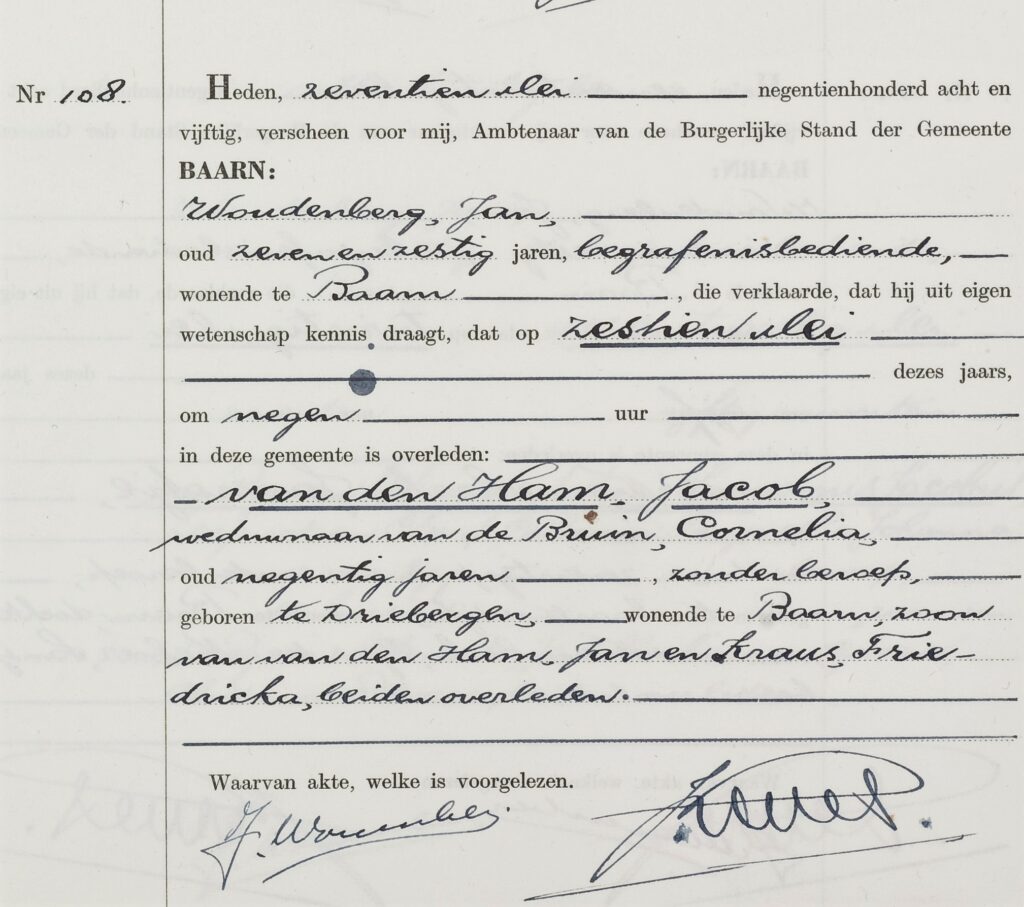 Nr 108. Heden, zeventien Mei negentienhonderd acht en
vijftig, verscheen voor mij, Ambtenaar van de Burgerlijke Stand der Gemeente
BAARN:
Woudenberg, Jan,
oud zeven en zestig jaren, begrafenisbediende,
wonende te Baarn, die verklaarde, dat hij uit eigen
wetenschap kennis draagt, dat op zestien Mei
dezes jaars,
om negen uur
in deze gemeente is overleden:
van den Ham, Jacob,
weduwnaar van de Bruin, Cornelia,
oud negentig jaren, zonder beroep,
geboren te Driebergen, wonende te Baarn, zoon
van van den Ham, Jan en Kraus, Frie-
dricka, beiden overleden.
Waarvan akte, welke is voorgelezen.